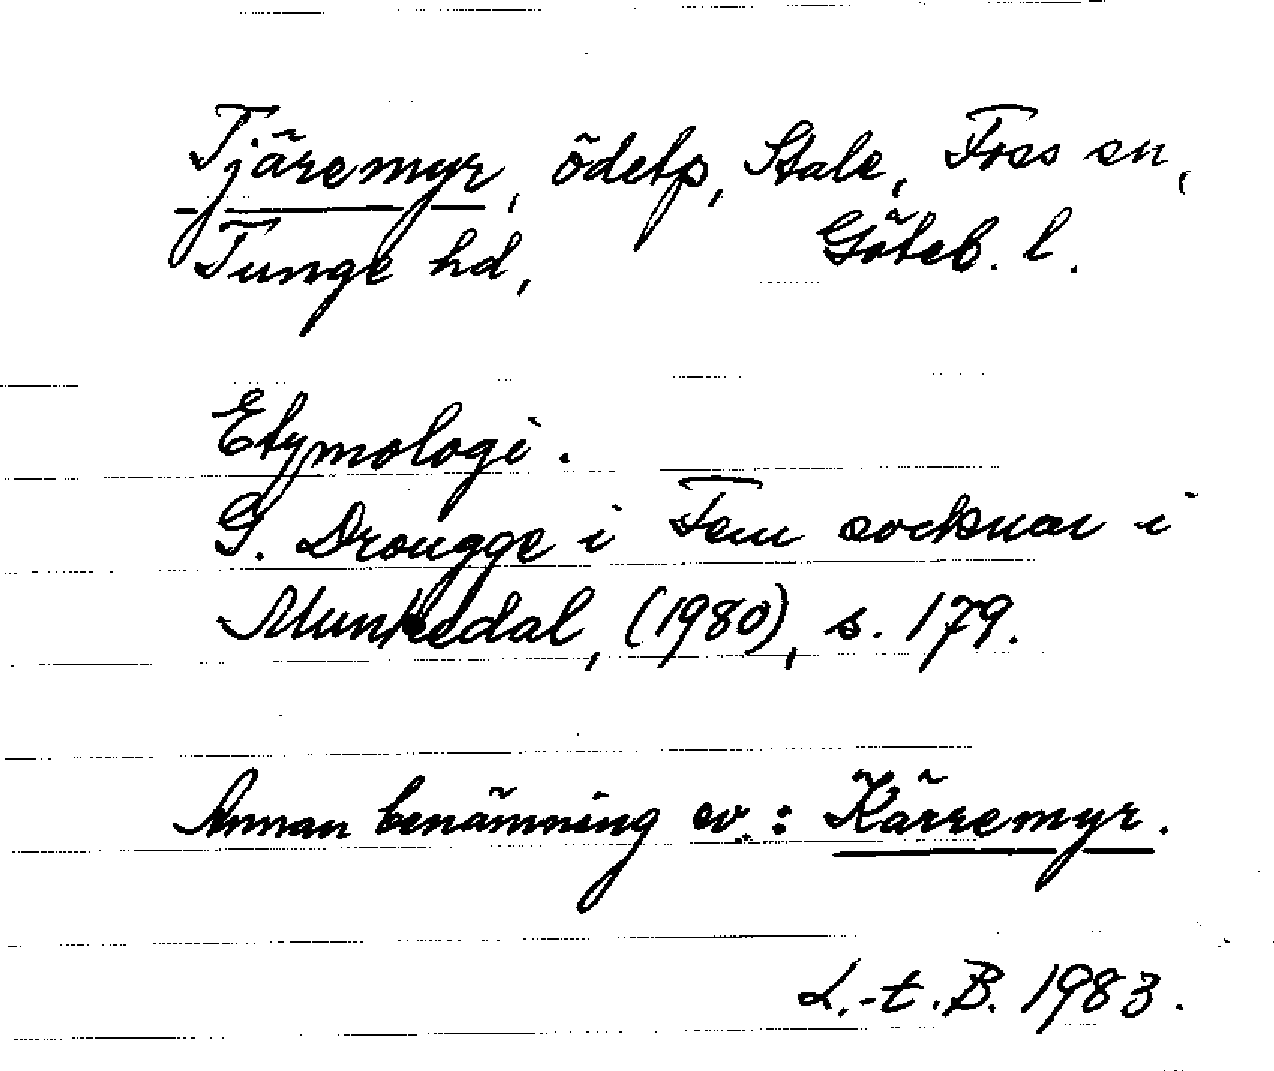 Tjäremyr, ödetp, Stale, Foss sn,
Tunge hd, Göteb. l.
Etymologi.
G. Drougge i Fem socknar i
Munkedal, (1980), s. 179.
Annan benämning av: Kärremyr.
L.-t. B. 1983.